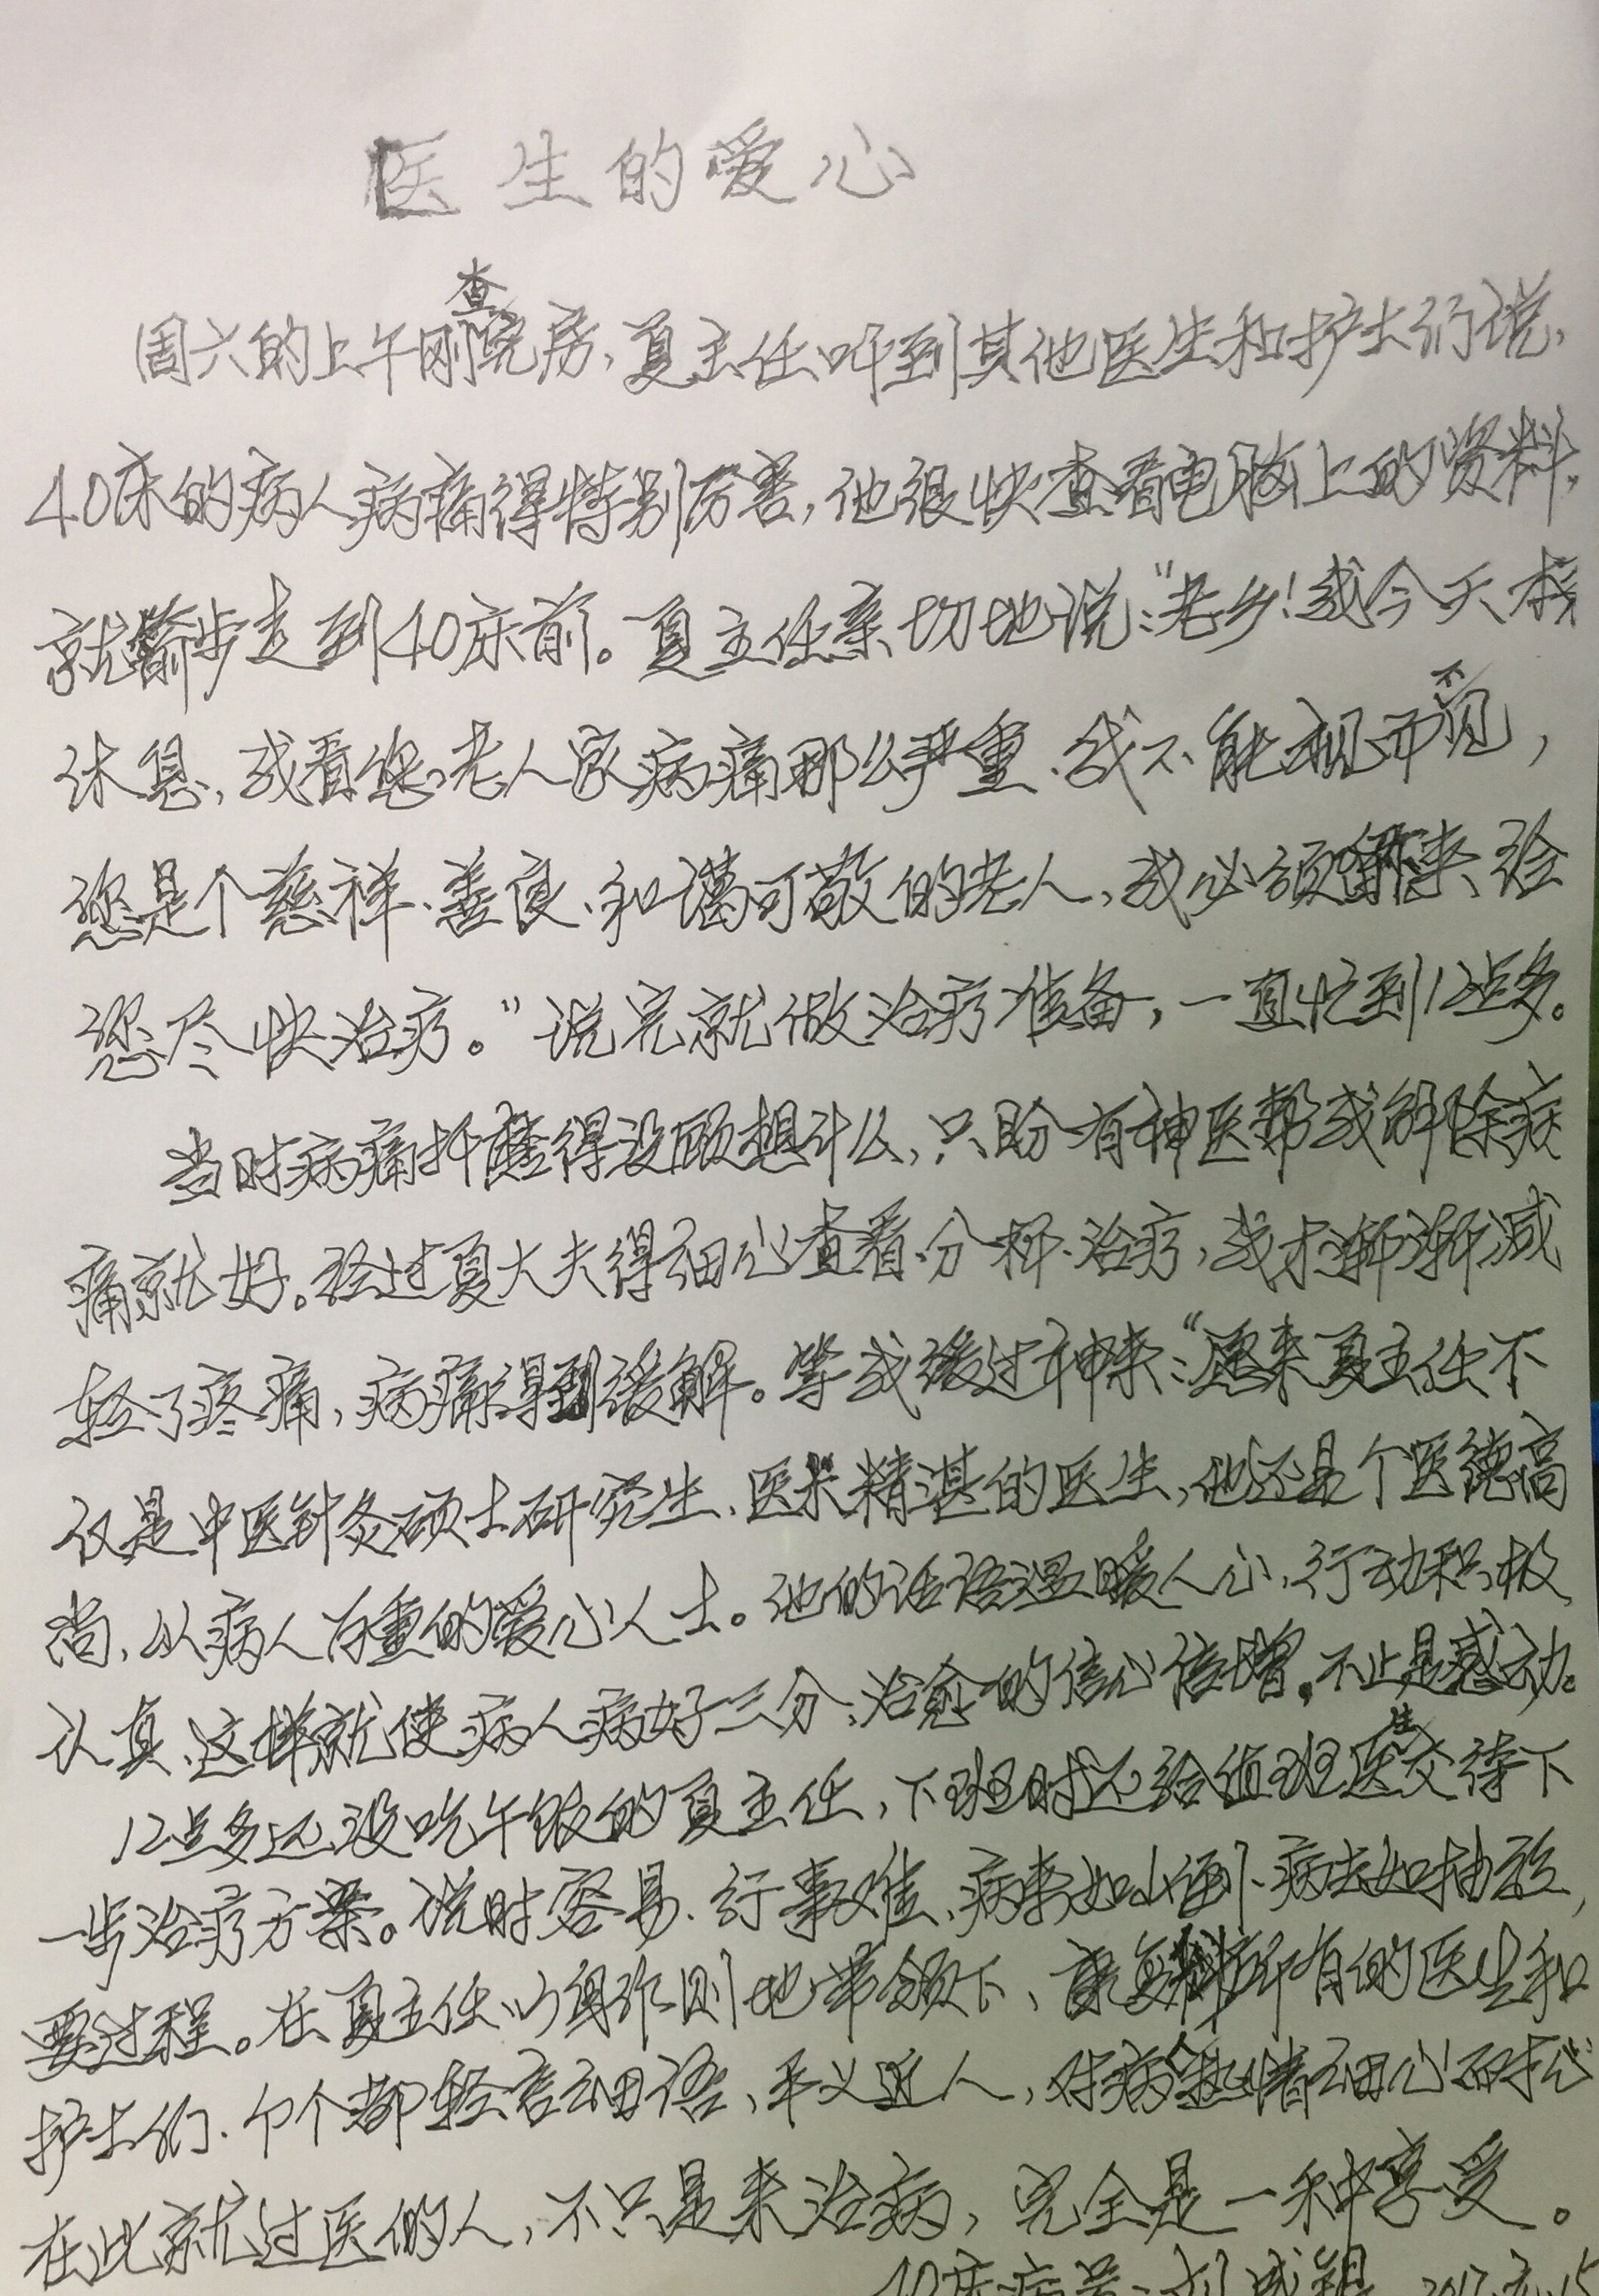 医生的爱心
周六的上午刚查完房、夏主任听到其他医生和护士们说、
40床的病人病痛得特别厉害,他很快查看电脑上的资料,
就箭步走到40床前。夏主任亲切地说:“老乡!我今天本
休息、我看您老人家病痛那么严重、我不能视而不见,
您是个慈祥、善良、和谒可敬的老人,我必须留下来、给
您尽快治疗。”说完就做治疗准备,一直忙到12点多。
当时病痛折得没顾想什么,只盼有神医帮我解除病
痛就好。经过夏大夫得细心查看、分析、治疗,我才渐渐减
轻了疼痛,病痛得到缓解。等我缓过神来:“原来夏主任不
仅是中医针灸硕士研究生、医术精湛的医生,他还是个医德高
尚、以病人为重的爱心人士。他的话语温暖人心、行动积极
认真、这样就使病人病好三分、治愈的信心倍增。不止是感动。
12点多还没吃午饭的夏主任,下班时还给值班医生交待下
一步治疗方案。说时容易、行事难、病来如山倒、病去如抽丝,
要过程。在夏主任以身作则地带领下、康复科所有的医生和
护士们、个个都轻言细语、平义近人,对病人热情细心而耐心
在此就过医的人,不只是来治病,完全是一种享受。
40床病号:刘成 2017.